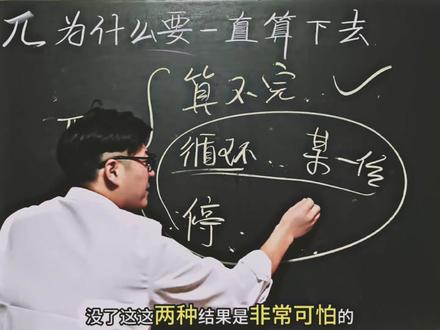 π 为什么要一直算下去
π
算不完..✓
循环.. 某一位
停..
没了这这两种结果是非常可怕的